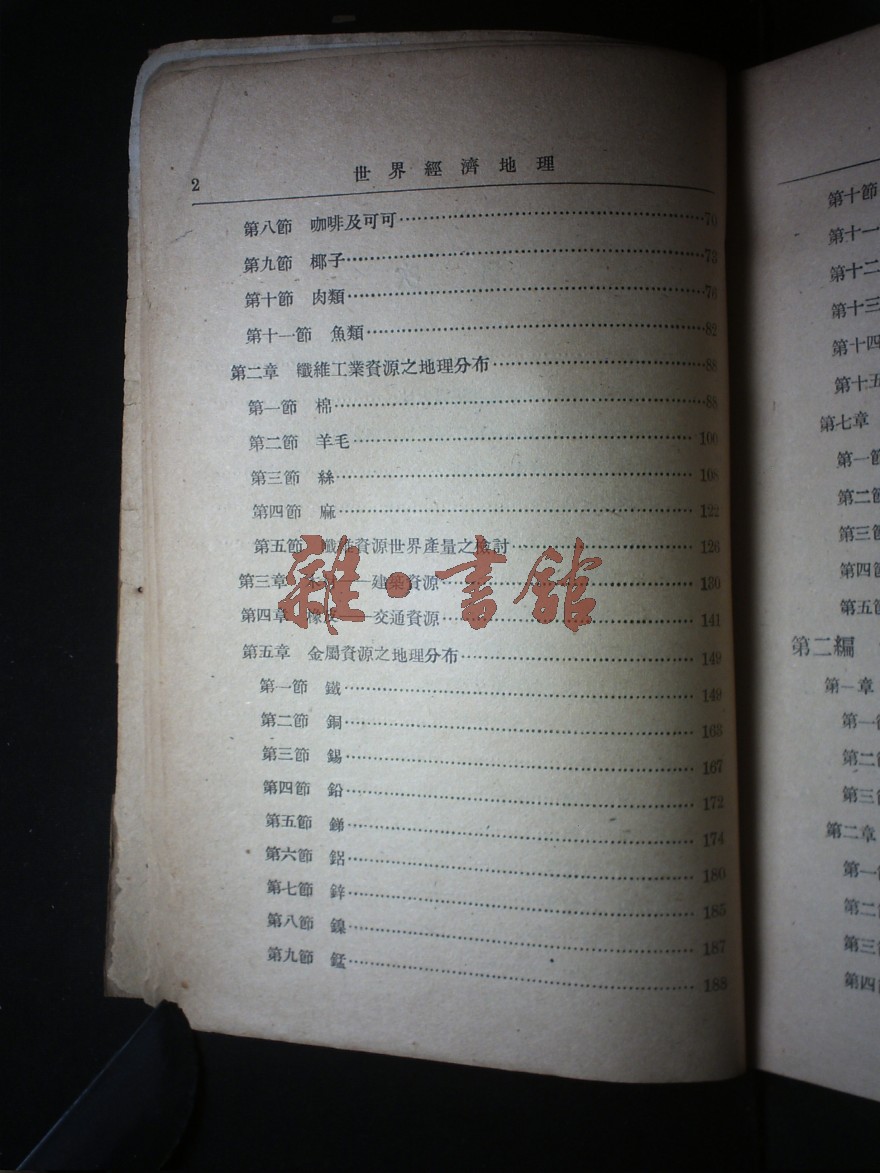 2
世界經濟地理
第八節 咖啡及可可 70
第九節 椰子 73
第十節 肉類 76
第十一節 魚類 82
第二章 纖維工業資源之地理分布 88
第一節 棉 88
第二節 羊毛 100
第三節 絲 108
第四節 麻 122
第五節 纖維資源世界產量之檢討 126
第三章 ——建築資源 130
第四章 橡皮——交通資源 141
第五章 金屬資源之地理分布 149
第一節 鐵 149
第二節 銅 163
第三節 錫 167
第四節 鉛 172
第五節 銻 174
第六節 鋁 180
第七節 鋅 185
第八節 鎳 187
第九節 錳 188
雜·書館
第十節
第十一
第十二
第十三
第十四
第十五
第七章
第一節
第二節
第三節
第四節
第五節
第二編
第一章
第一節
第二節
第三節
第二章
第一節
第二節
第三節
第四節